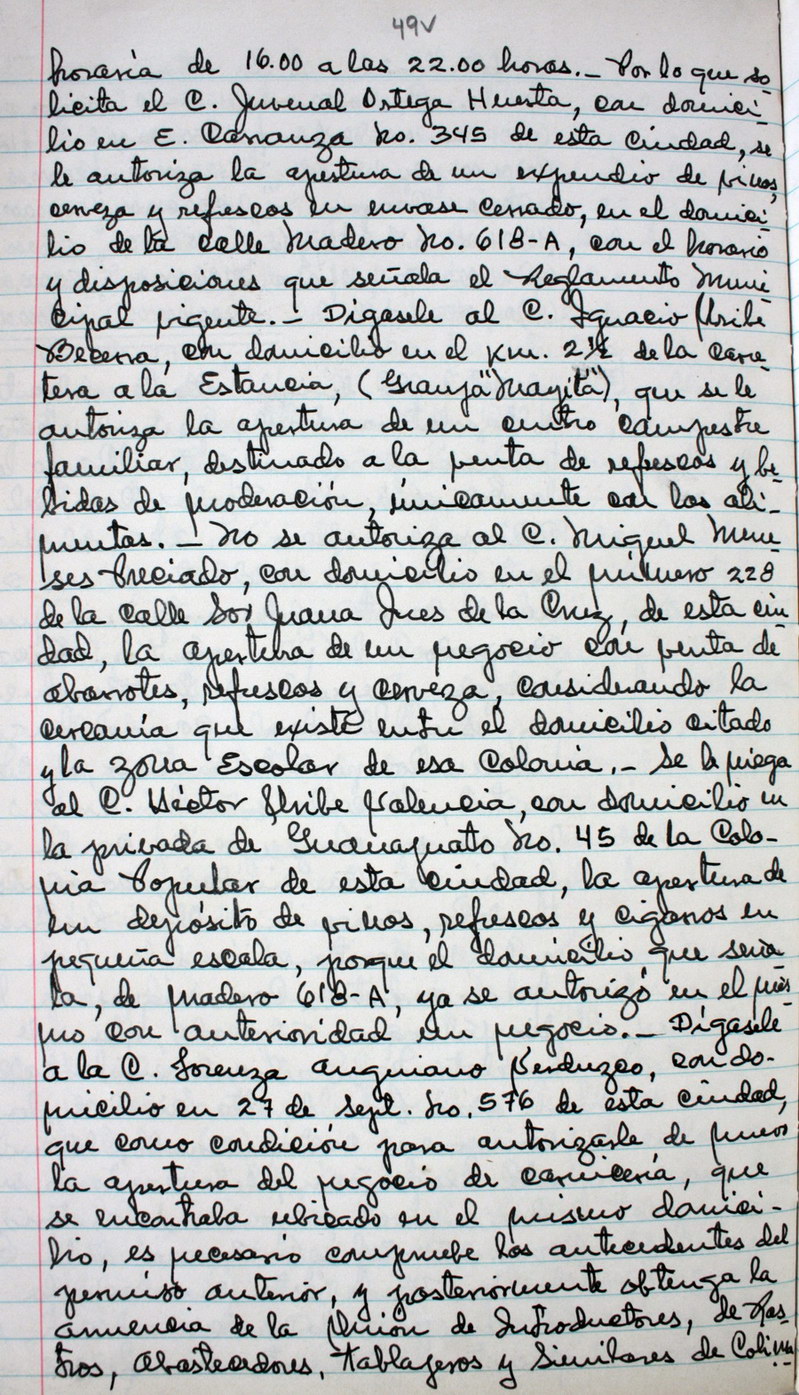 49v
horaria de 16.00 a las 22.00 horas.- Por lo que so
licita el C. Juvenal Ortega Huerta, con domici-
lio en E. Carranza No. 345 de esta ciudad, se
le autoriza la apertura de un expendio de vinos,
cerveza y refrescos en envase cerrado, en el domici-
lio de la calle Madero No. 618-A, con el horario
y disposiciones que señala el Reglamento Muni
cipal vigente.- Dígasele al C. Ignacio Uribe
Becerra, con domicilio en el Km. 2½ de la Carre-
tera a la Estancia, (Granja "Mayita"), que se le
autoriza la apertura de un centro campestre
familiar, destinado a la venta de refrescos y be-
bidas de moderación, únicamente con los ali-
mentos.- No se autoriza al C. Miguel Mene
ses Preciado, con domicilio en el número 228
de la calle Sor Juana Ines de la Cruz, de esta ciu
dad, la apertura de un negocio con venta de
abarrotes, refrescos y cerveza, considerando la
cercanía que existe entre el domicilio citado
y la zona Escolar de esa Colonia.- Se le niega
al C. Héctor Uribe Valencia, con domicilio en
la privada de Guanajuato No. 45 de la Colo-
nia Popular de esta ciudad, la apertura de
un depósito de vinos, refrescos y cigarros en
pequeña escala, porque el domicilio que seña
la, de Madero 618-A, ya se autorizó en el mis-
mo con anterioridad un negocio.- Dígasele
a la C. Lorenza Anguiano Verduzco, con do-
micilio en 27 de Sept. No. 576 de esta ciudad,
que como condición para autorizarle de nuevo
la apertura del negocio de carnicería, que
se encontraba ubicado en el mismo domici-
lio, es necesario compruebe los antecedentes del
permiso anterior, y posteriormente obtenga la
anuencia de la Unión de Introductores, de Ras
tros, Abastecedores, Tablajeros y Similares de Colima